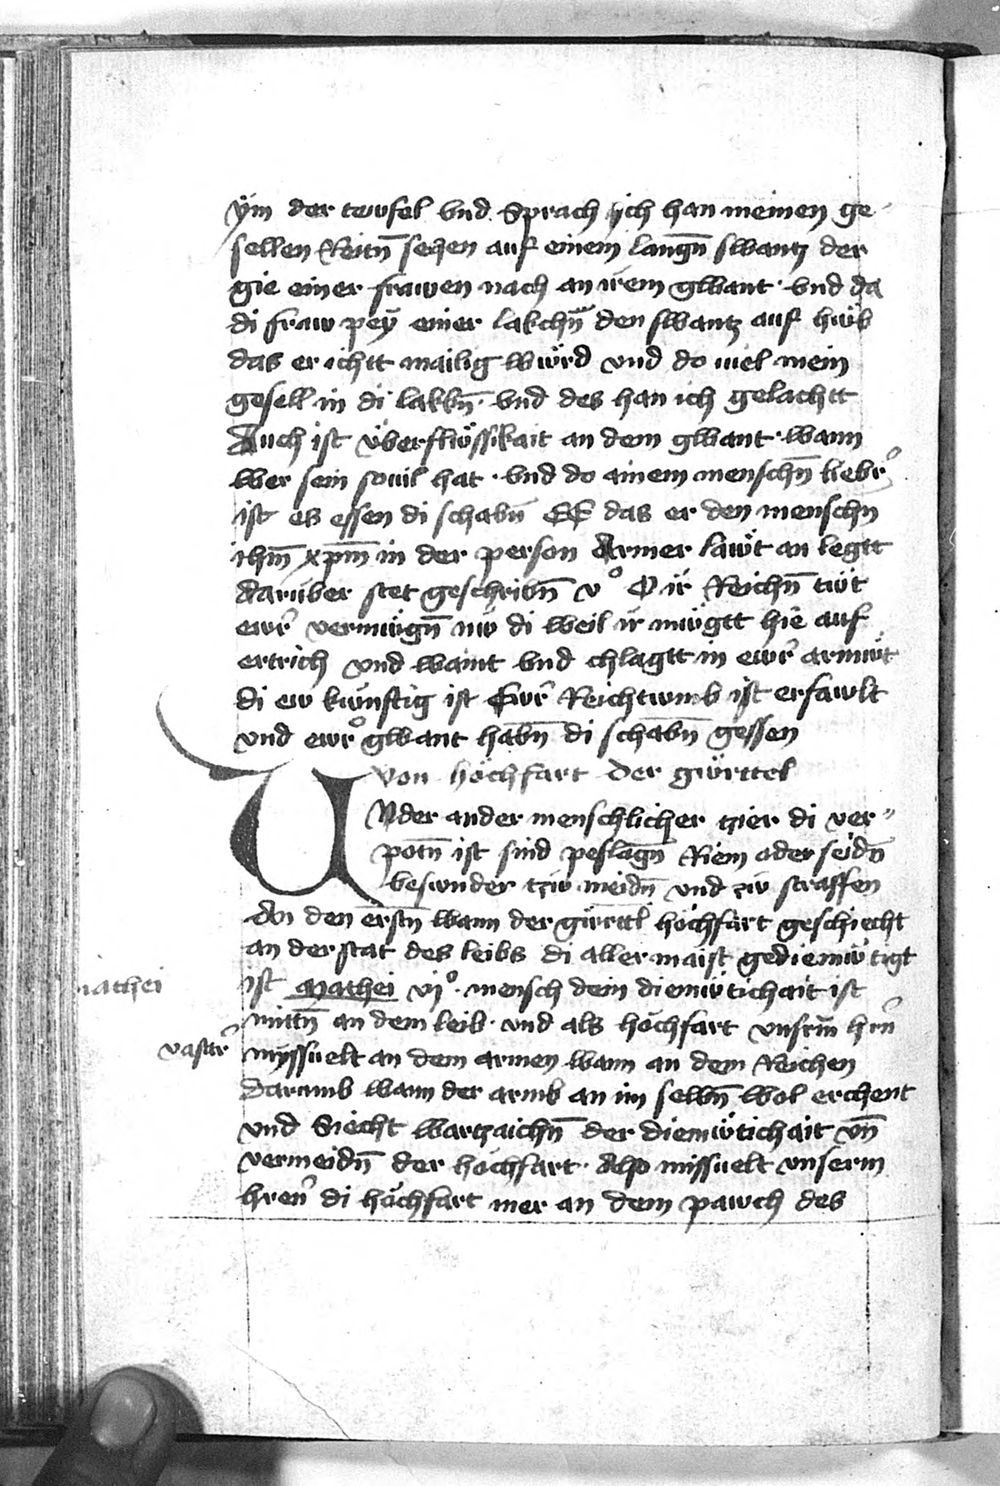 ÿm der tewfel vnd sprach ich han meinen ge-
sellen Reitn̄ sehen auf einem langn̄ swantz der
gie einer frawen nach an irem gwant · vnd da
di fraw peÿ einer lakchn̄ den swantz auf hüb
das er ichtt mailig würd vnd do viel mein
gesell in di lakkn̄ · vnd des han ich gelachtt
Auch ist überflüssikait an dem gwant · wann
wer sein souil hat · vnd do ainem menschn̄ lieber
ist es essen di schabn̄ EE das er den menschn
ihm̄ xp̄m in der person Armer lawt an legtt
darüber stet geschribn̄ v° O ir Reichn̄ tüt
ewr vermügn̄ nw di weil ir mügtt hie auf
ertrich vnd waint vnd chlagtt in ewr armüt
di ew künftig ist Ewr Reichtumb ist erfawlt
vnd ewr gwant habn̄ di schabn̄ gessen
Von höchfart der gürttel
UNder ander menschlicher tzier di ver-
potn̄ ist sind peslagn̄ Riem oder seidn̄
besunder tzw meidn̄ vnd zw straffen
An den erstn̄ wann der gürttl höchfart geschiecht
an der stat des leibs di aller maist gediemütigt
ist Mathei vj° · mensch dein diemütichait ist
mathei
mittn̄ an dem leib · vnd als höchfart vnserm̄ hrn̄
vaster
myssuelt an dem armen wann an dem Reichen
Darumb wann der armb an im selbn̄ wol erchent
vnd Siecht wartzaichn̄ der diemütichait vn̄
vermeidn̄ der höchfart · Also missuelt vnserm
hren̄ di höchfart mer an dem pawch des